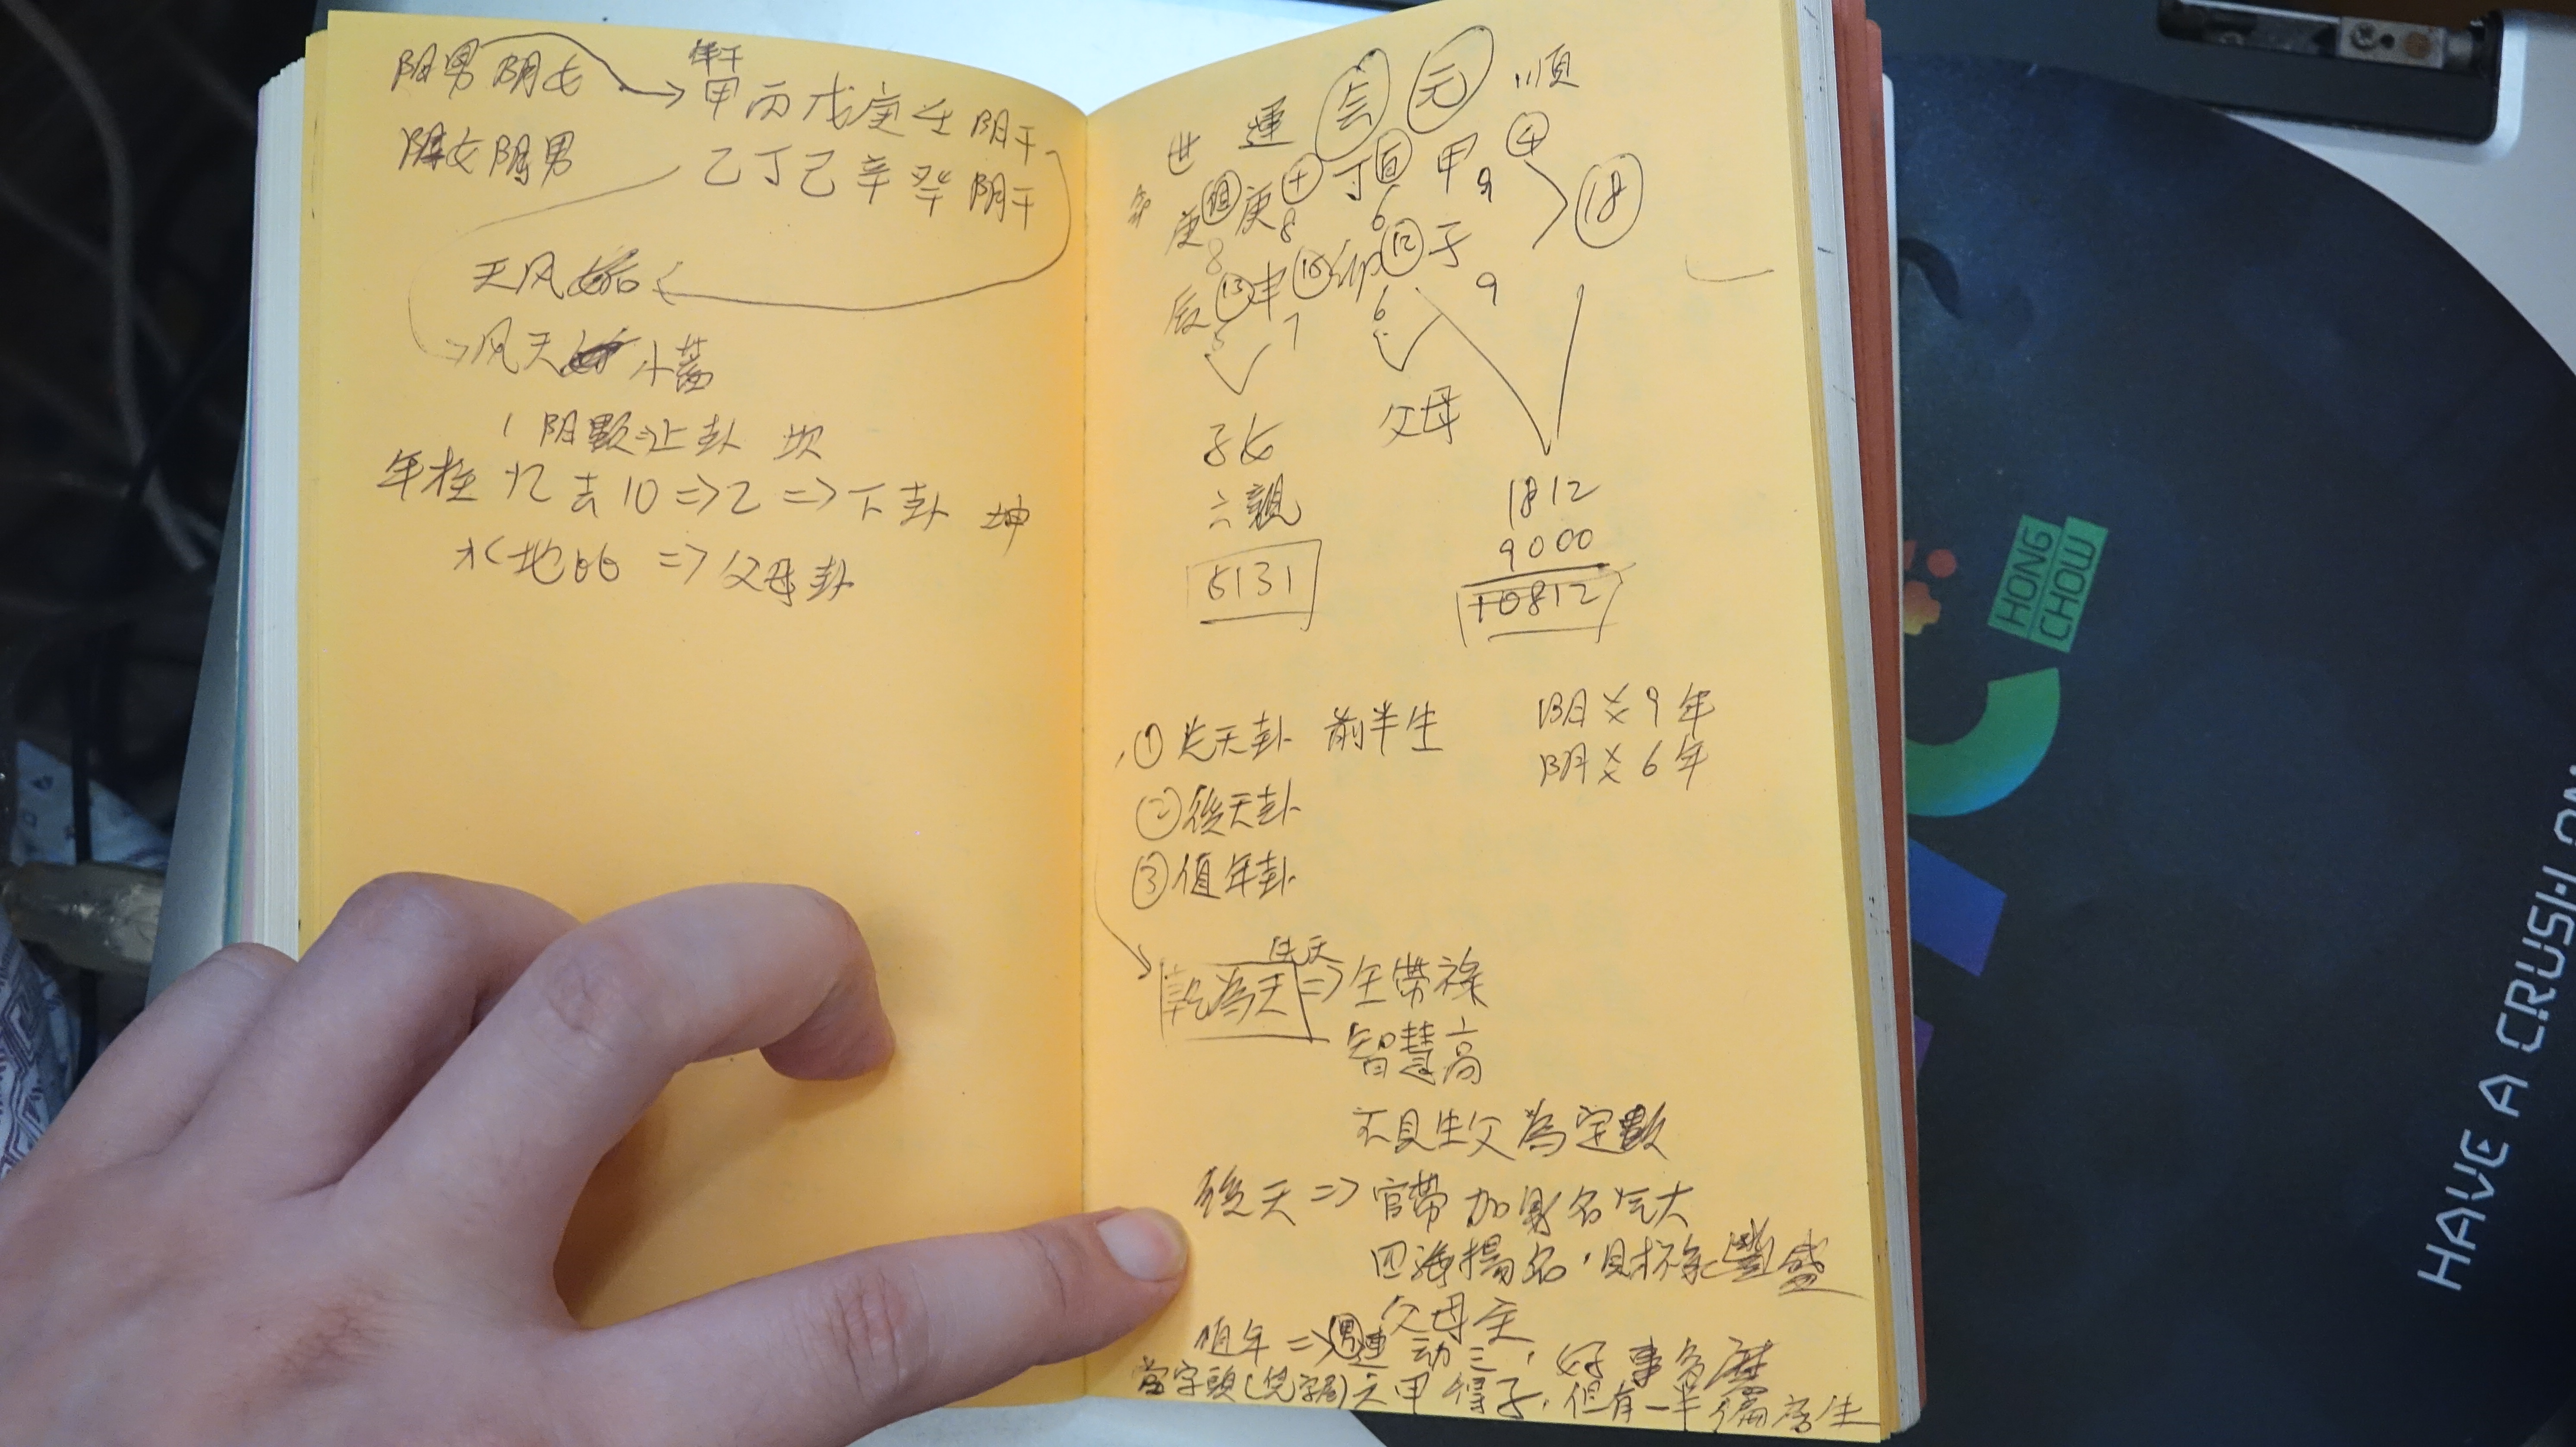 阳男阴女
年干
甲丙戊庚壬 阳干
阳女阴男
乙丁己辛癸 阴干
天风姤
风天 小蓄
阴數 上卦 坎
年柱 12 去 10 => 2 => 下卦 坤
水地比 => 父母卦
世 運 会 元 順
庚 庚 十 丁 百 甲 4
8 8 6 9
18
辰 13 申 15 卯 12 子
5 7 6 9
子女
六親
父母
5131
1812
9000
10812
① 先天卦 前半生
阳爻9年
阴爻6年
② 後天卦
③ 值年卦
先天
乾為天 => 生帶祿
智慧高
不見生父為定數
後天 => 官帶加 名气大
四海揚名,財祿豐盛
父母主
值年 => 男運 动三,好事多磨
得子,但有一半
HONG
CHOW
HAVE A CRUSH ON